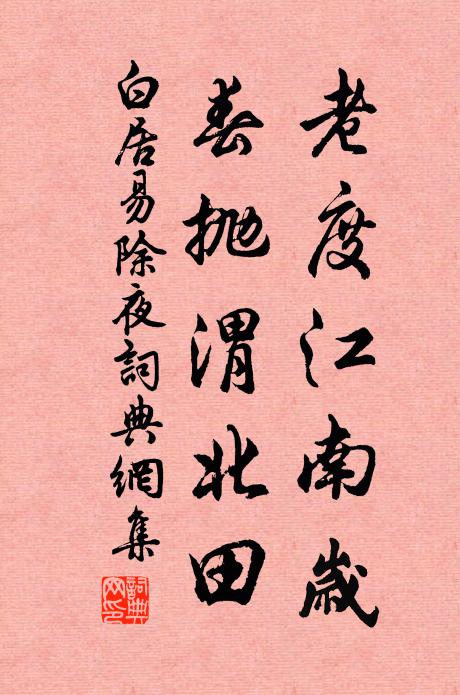 老度江南歲
春拋渭北田
白居易除夜詞典網集
詞典網印